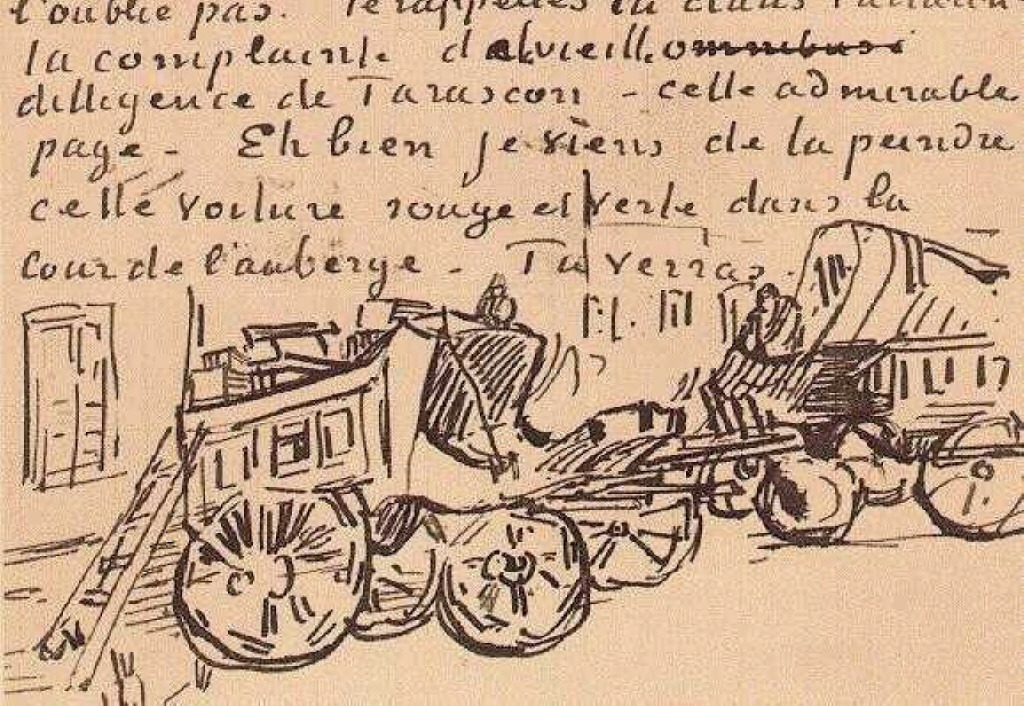 l'oublie pas. Te rappelles tu dans
la complainte de la vieille omnibus
dilligence de Tarascon – celle admirable
page – Eh bien je viens de la peindre
cette voiture rouge et verte dans la
cour de l'auberge – Tu verras.